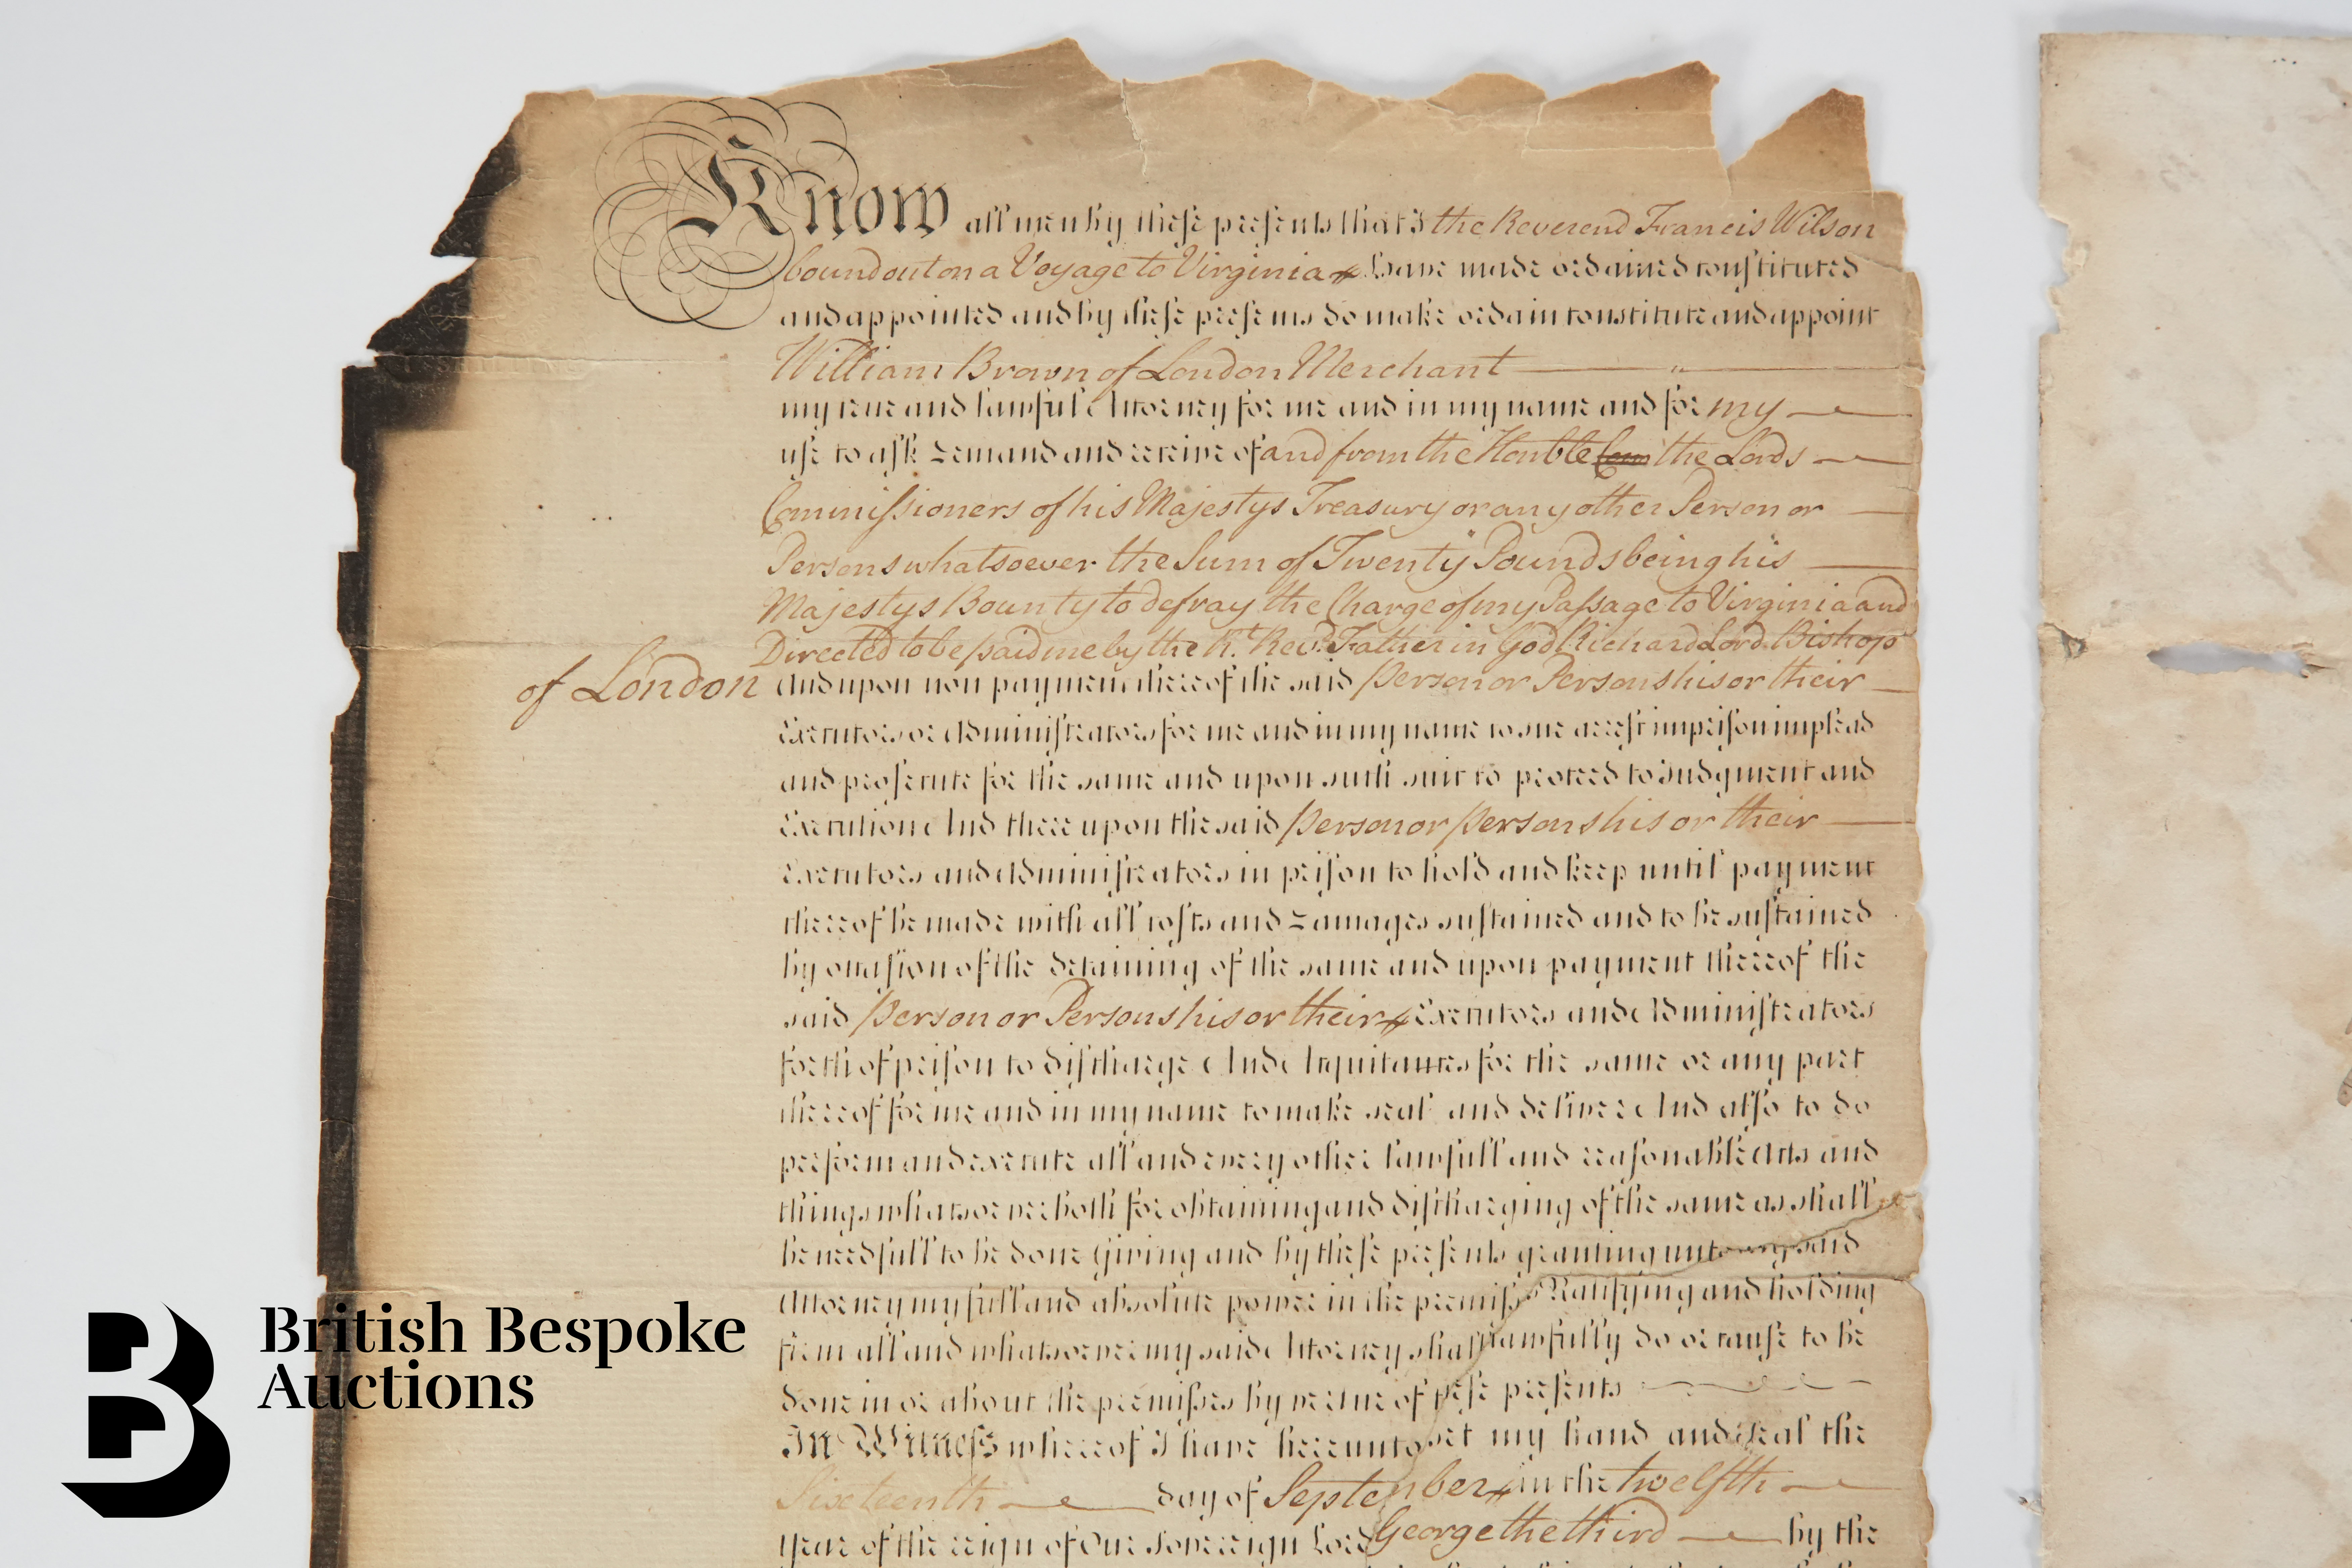 Know all men by these presents that I the Reverend Francis Wilson
bound out on a Voyage to Virginia have made ordained constituted
and appointed and by these presents do make ordain constitute and appoint
William Brown of London Merchant
my true and lawful Attorney for me and in my name and for my
use to ask demand and receive of and from the Honble Com the Lords
Commissioners of his Majestys Treasury or any other Person or
Persons whatsoever the Sum of Twenty Pounds being his
Majestys Bounty to defray the Charge of my Passage to Virginia and
Directed to be paid me by the Rt. Revd. Father in God Richard Lord Bishop
of London and upon non payment thereof the said person or Persons his or their
Executors or Administrators for me and in my name to sue arrest imprison implead
and prosecute for the same and upon such suit to proceed to Judgment and
Execution And thereupon the said person or persons his or their
Executors and Administrators in prison to hold and keep until payment
thereof be made with all costs and damages sustained and to be sustained
by occasion of the detaining of the same and upon payment thereof the
said person or Persons his or their Executors and Administrators
forth of prison to discharge And Acquitances for the same or any part
thereof for me and in my name to make seal and deliver And also to do
perform and execute all and every other lawfull and reasonable Acts and
things whatsoever both for obtaining and discharging of the same as shall
be needfull to be done Giving and by these presents granting unto my said
Attorney my full and absolute power in the premises Ratifying and holding
firm all and whatsoever my said Attorney shall lawfully do or cause to be
done in or about the premisses by vertue of these presents
In Witness whereof I have hereunto set my hand and seal the
Sixteenth day of September in the twelfth
year of the reign of Our Sovereign Lord George the third by the
British Bespoke
Auctions